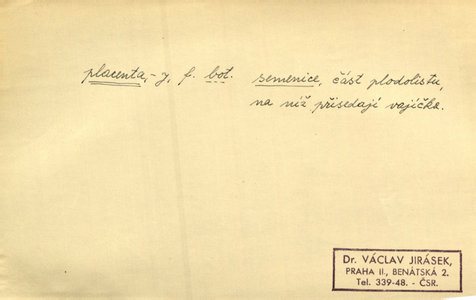 placenta, -y, f. bot. semenice, část plodolistu,
na níž přisedají vajíčka.
Dr. VÁCLAV JIRÁSEK,
PRAHA II., BENÁTSKÁ 2.
Tel. 339-48. - ČSR.